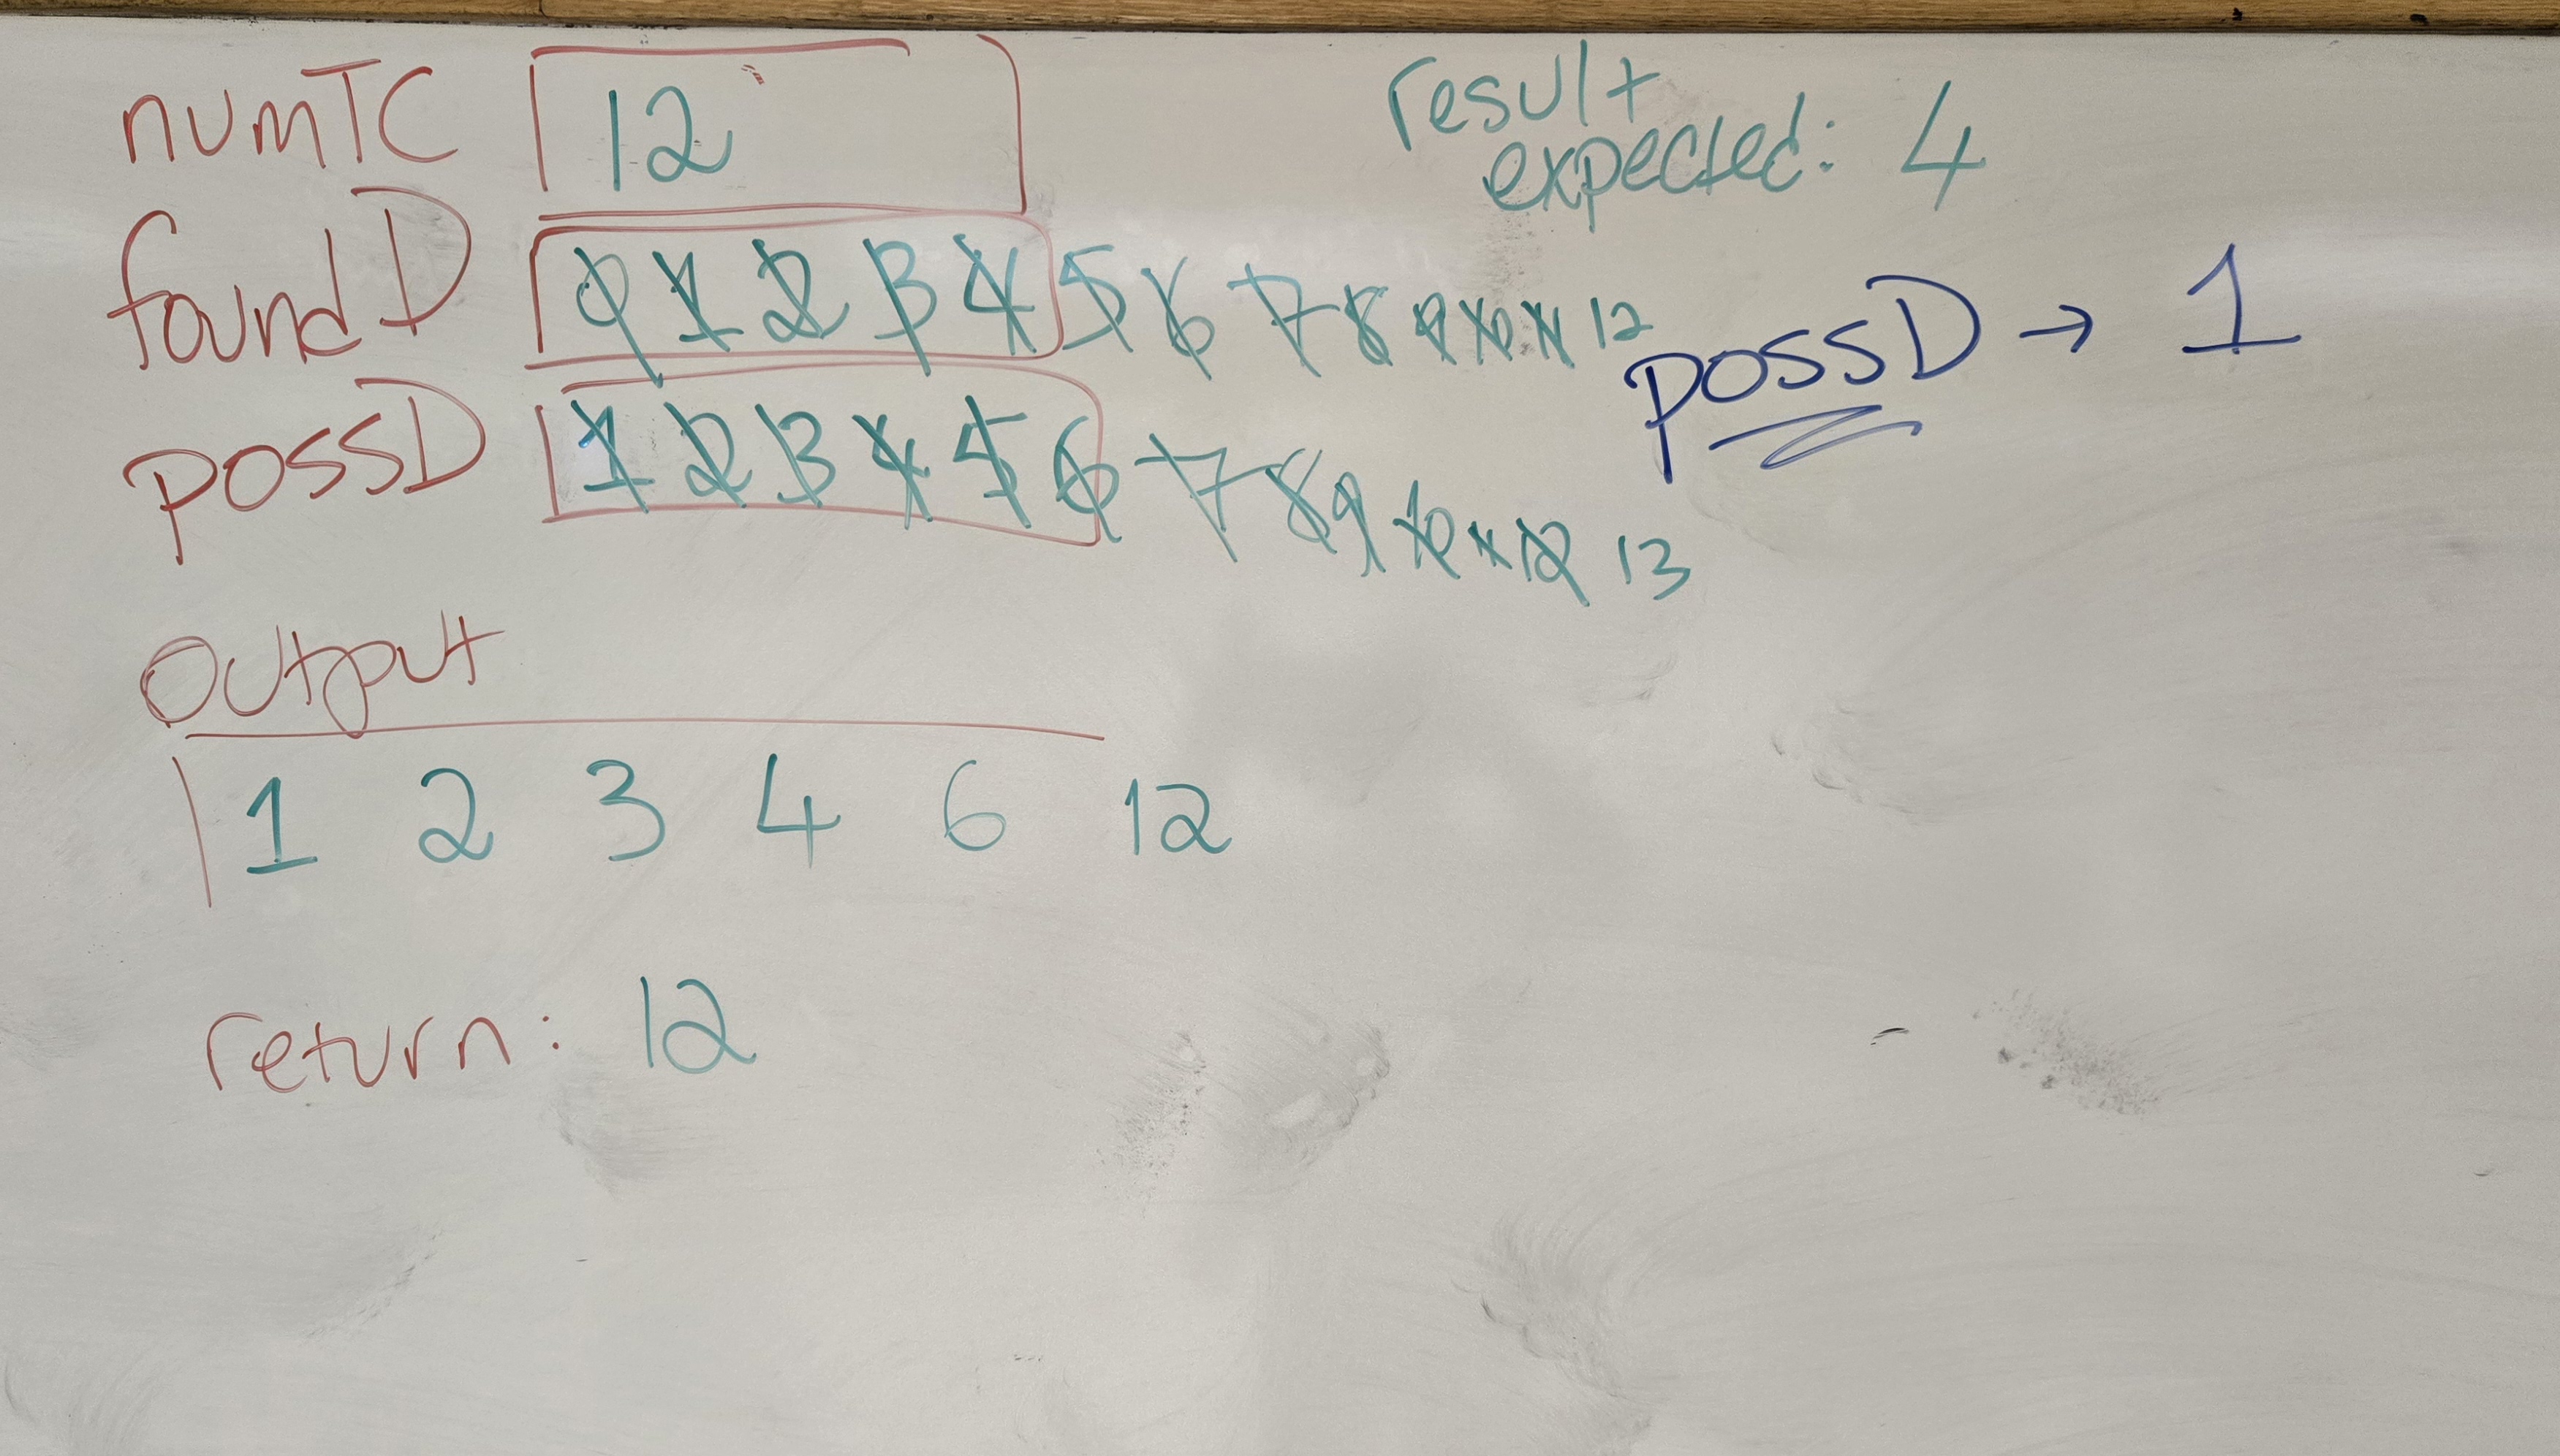 numTC 12
result
expected: 4
foundD 0 1 2 3 4 5 6 7 8 9 10 11 12
possD → 1
possD 1 2 3 4 5 6 7 8 9 10 11 12 13
Output
1 2 3 4 6 12
return: 12